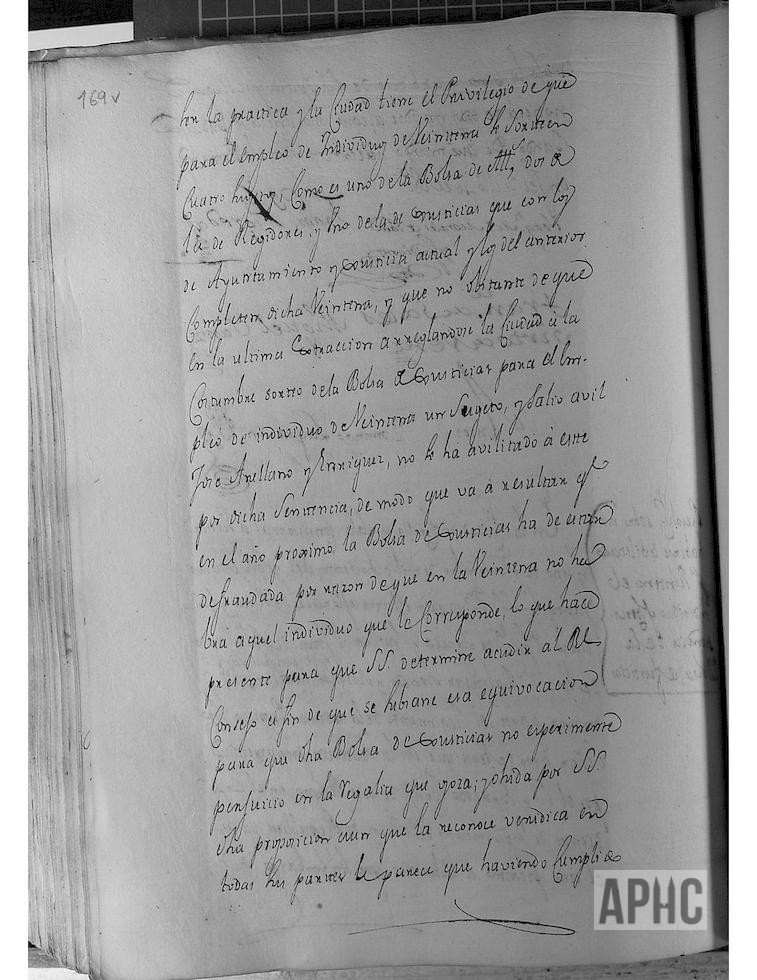 169v
la practica y la Ciudad tiene el Privilegio de que
para el empleo de Individuos de Veintena se sorteen
Cuatro, Como es uno de la Bolsa de Alldes dos de
la de Regidores, y Uno de la de Justicias que con los
de Ayuntamiento y Justicia actual y los del anterior
Completen dicha Veintena, y que no obstante de que
en la ultima Extraccion arreglandose la Ciudad a la
Costumbre sorteo de la Bolsa de Justicias para el Em-
pleo de individuo de Veintena un Sugeto, y Salio avil
Jose Arellano y Enriquez, no se ha avilitado à este
por dicha Sentencia, de modo que va à resultar qe
en el año proximo la Bolsa de Justicias ha de estar
defraudada por razon de que en la Veintena no ha-
brá aquel individuo que le Corresponde, lo que hace
presente para que SS. determine acudir al Rl
Consejo a fin de que se subsane esa equivocacion
para que dha Bolsa de Justicias no esperimente
perjuicio en la Regalia que goza; y ohida por SS.
dha proposicion aun que la reconoce veridica en
todas sus partes le parece que haviendo Cumplido
APHC